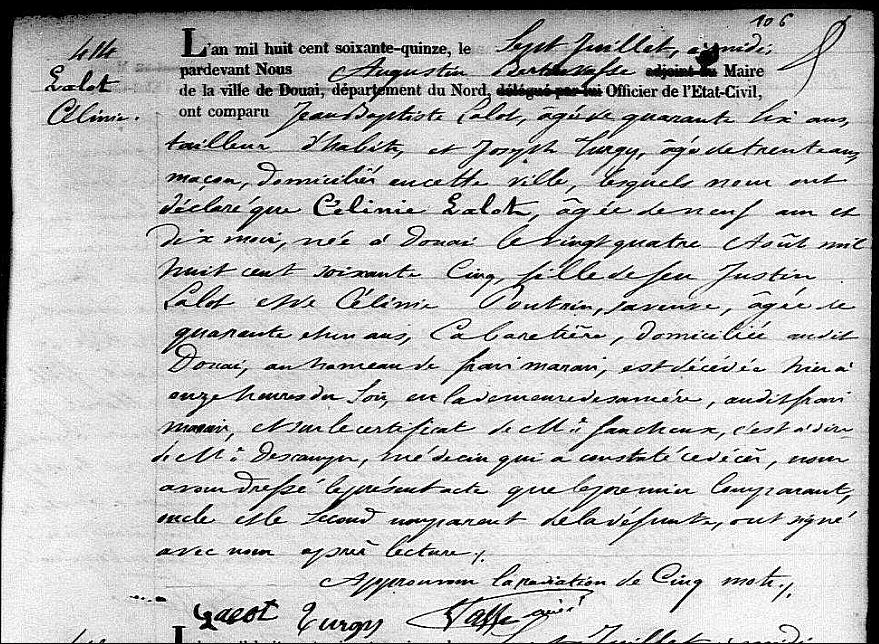 106
414
Lalot
Célinie.
L'an mil huit cent soixante-quinze, le Sept Juillet, à midi,
pardevant Nous Augustin adjoint au Maire
de la ville de Douai, département du Nord, délégué par lui Officier de l'Etat-Civil,
ont comparu Jean Baptiste Lalot, âgé de quarante six ans,
tailleur d'habits, et Joseph Turgy, âgé de trente ans,
maçon, domiciliés en cette ville, lesquels nous ont
déclaré que Célinie Lalot, âgée de neuf ans et
dix mois, née à Douai le vingt quatre Août mil
huit cent soixante cinq, fille de feu Justin
Lalot et de Célinie Poutrin, sa veuve, âgée de
quarante et un ans, Cabaretière, domiciliée audit
Douai, au hameau de frais marais, est décédée hier à
onze heures du Soir, en la demeure de sa mère, audit frais
marais, et sur le certificat de Mr faucheux, c'est à dire
de Mr , médecin qui a constaté ce décès, nous
avons dressé le présent acte que le premier Comparant,
oncle et le Second non parent de la défunte, ont signé
avec nous après lecture.
Approuvons la radiation de Cinq mots.
Lalot Turgy
Juillet midi